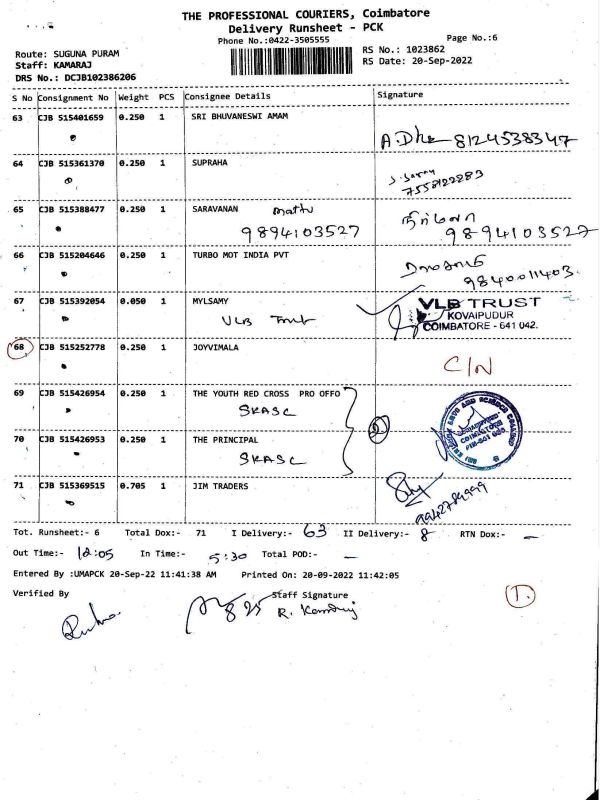 THE PROFESSIONAL COURIERS, Coimbatore
Delivery Runsheet - PCK
Phone No.:0422-3505555
Page No.:6
Route: SUGUNA PURAM
Staff: KAMARAJ
DRS No.: DCJB102386206
RS No.: 1023862
RS Date: 20-Sep-2022
S No Consignment No Weight PCS Consignee Details Signature
63 CJB 515401659 0.250 1 SRI BHUVANESWI AMAM
8124538347
64 CJB 515361370 0.250 1 SUPRAHA
65 CJB 515388477 0.250 1 SARAVANAN
9894103527 9894103527
66 CJB 515204646 0.250 1 TURBO MOT INDIA PVT
9840011403.
67 CJB 515392054 0.050 1 MYLSAMY
VLB Trust
VLB TRUST
KOVAIPUDUR
COIMBATORE - 641 042.
68 CJB 515252778 0.250 1 JOYVIMALA
C/N
69 CJB 515426954 0.250 1 THE YOUTH RED CROSS PRO OFFO
SKASC
70 CJB 515426953 0.250 1 THE PRINCIPAL
SKASC
71 CJB 515369515 0.705 1 JIM TRADERS
Tot. Runsheet:- 6 Total Dox:- 71 I Delivery:- 63 II Delivery:- 8 RTN Dox:- -
Out Time:- 12:05 In Time:- 5:30 Total POD:- -
Entered By :UMAPCK 20-Sep-22 11:41:38 AM Printed On: 20-09-2022 11:42:05
Verified By Staff Signature
R. Kamaraj